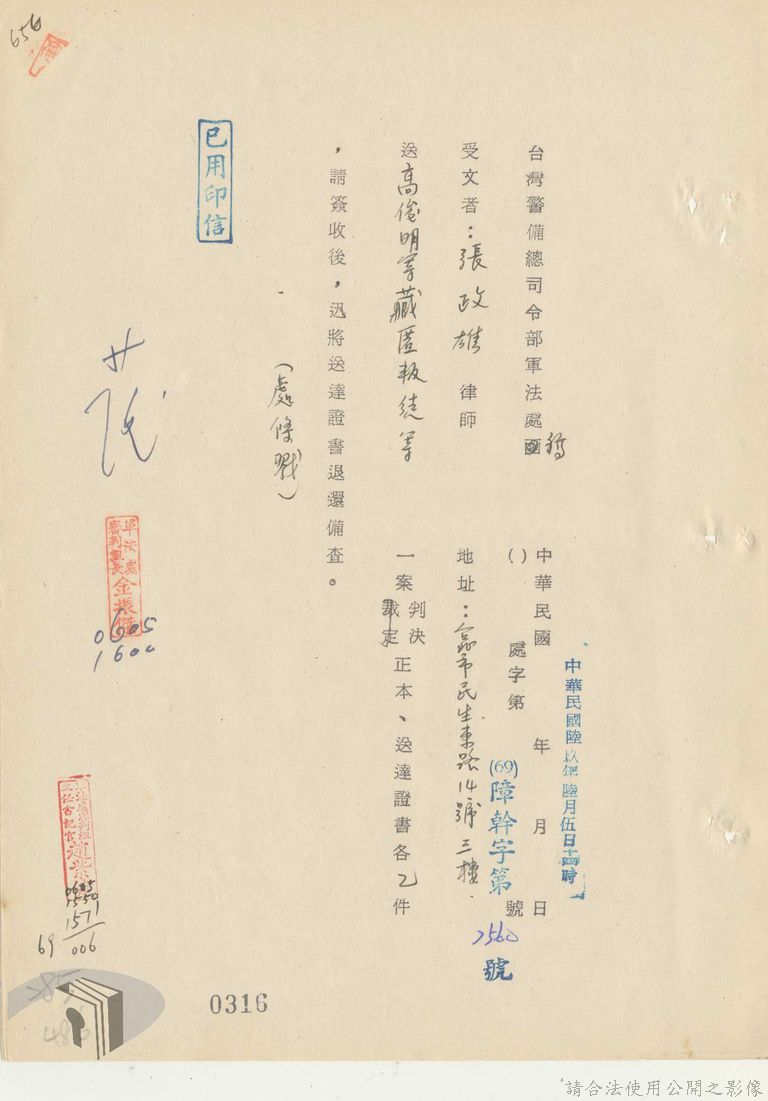 656
台灣警備總司令部軍法處函稿
中華民國 年 月 日
中華民國陸玖年陸月伍日十四時
( ) 處字第 號
(69)障幹字第2560號
受文者：張政雄 律師
地址：台北市民生東路14號三樓
送高俊明等藏匿叛徒等
一案 判決 裁定 正本、送達證書各乙件
，請簽收後，迅將送達證書退還備查。
(處條戳)
已用印信
軍法處
審判組長 金振
0605
1600
0605
1550
1571
69 006
0316
請合法使用公開之影像